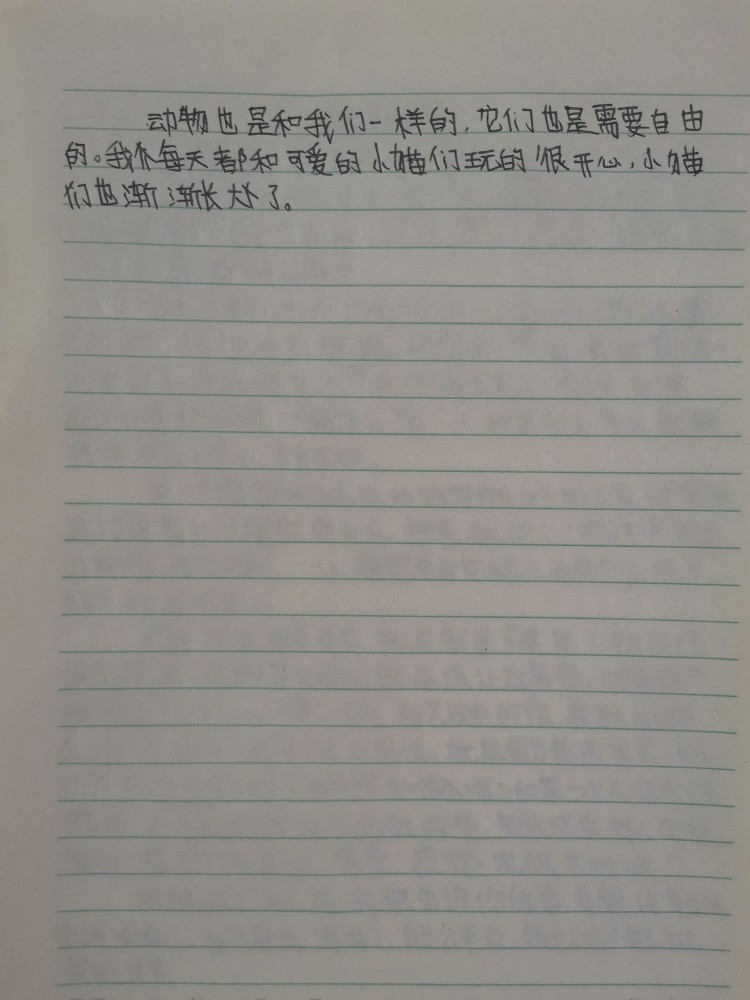 动物也是和我们一样的，它们也是需要自由
的。我每天都和可爱的小猫们玩的很开心，小猫
们也渐渐长大了。